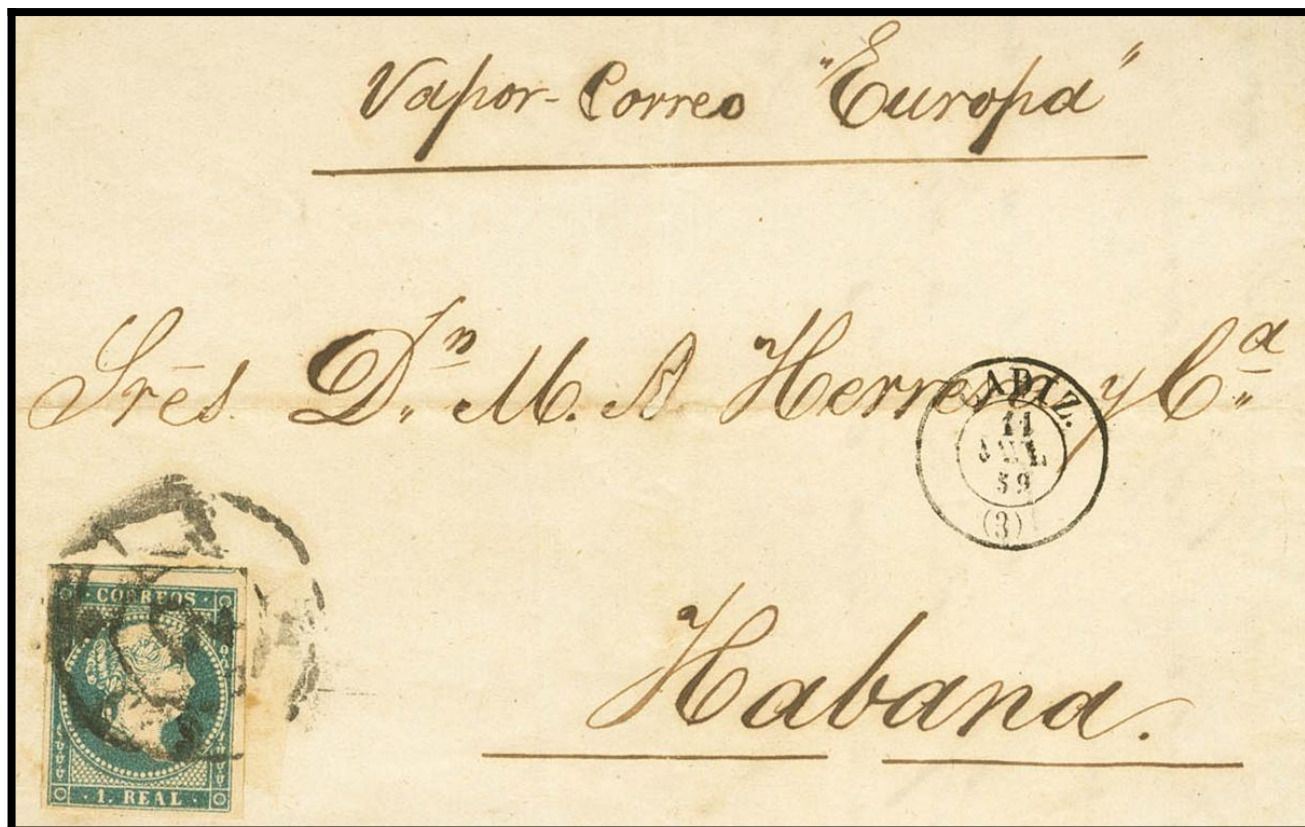 Vapor-Correo "Europa"
Srēs Dn. M. A Herrera y Cª
CADIZ.
11
JUL.
59
(3)
Habana.
CORREOS
1. REAL